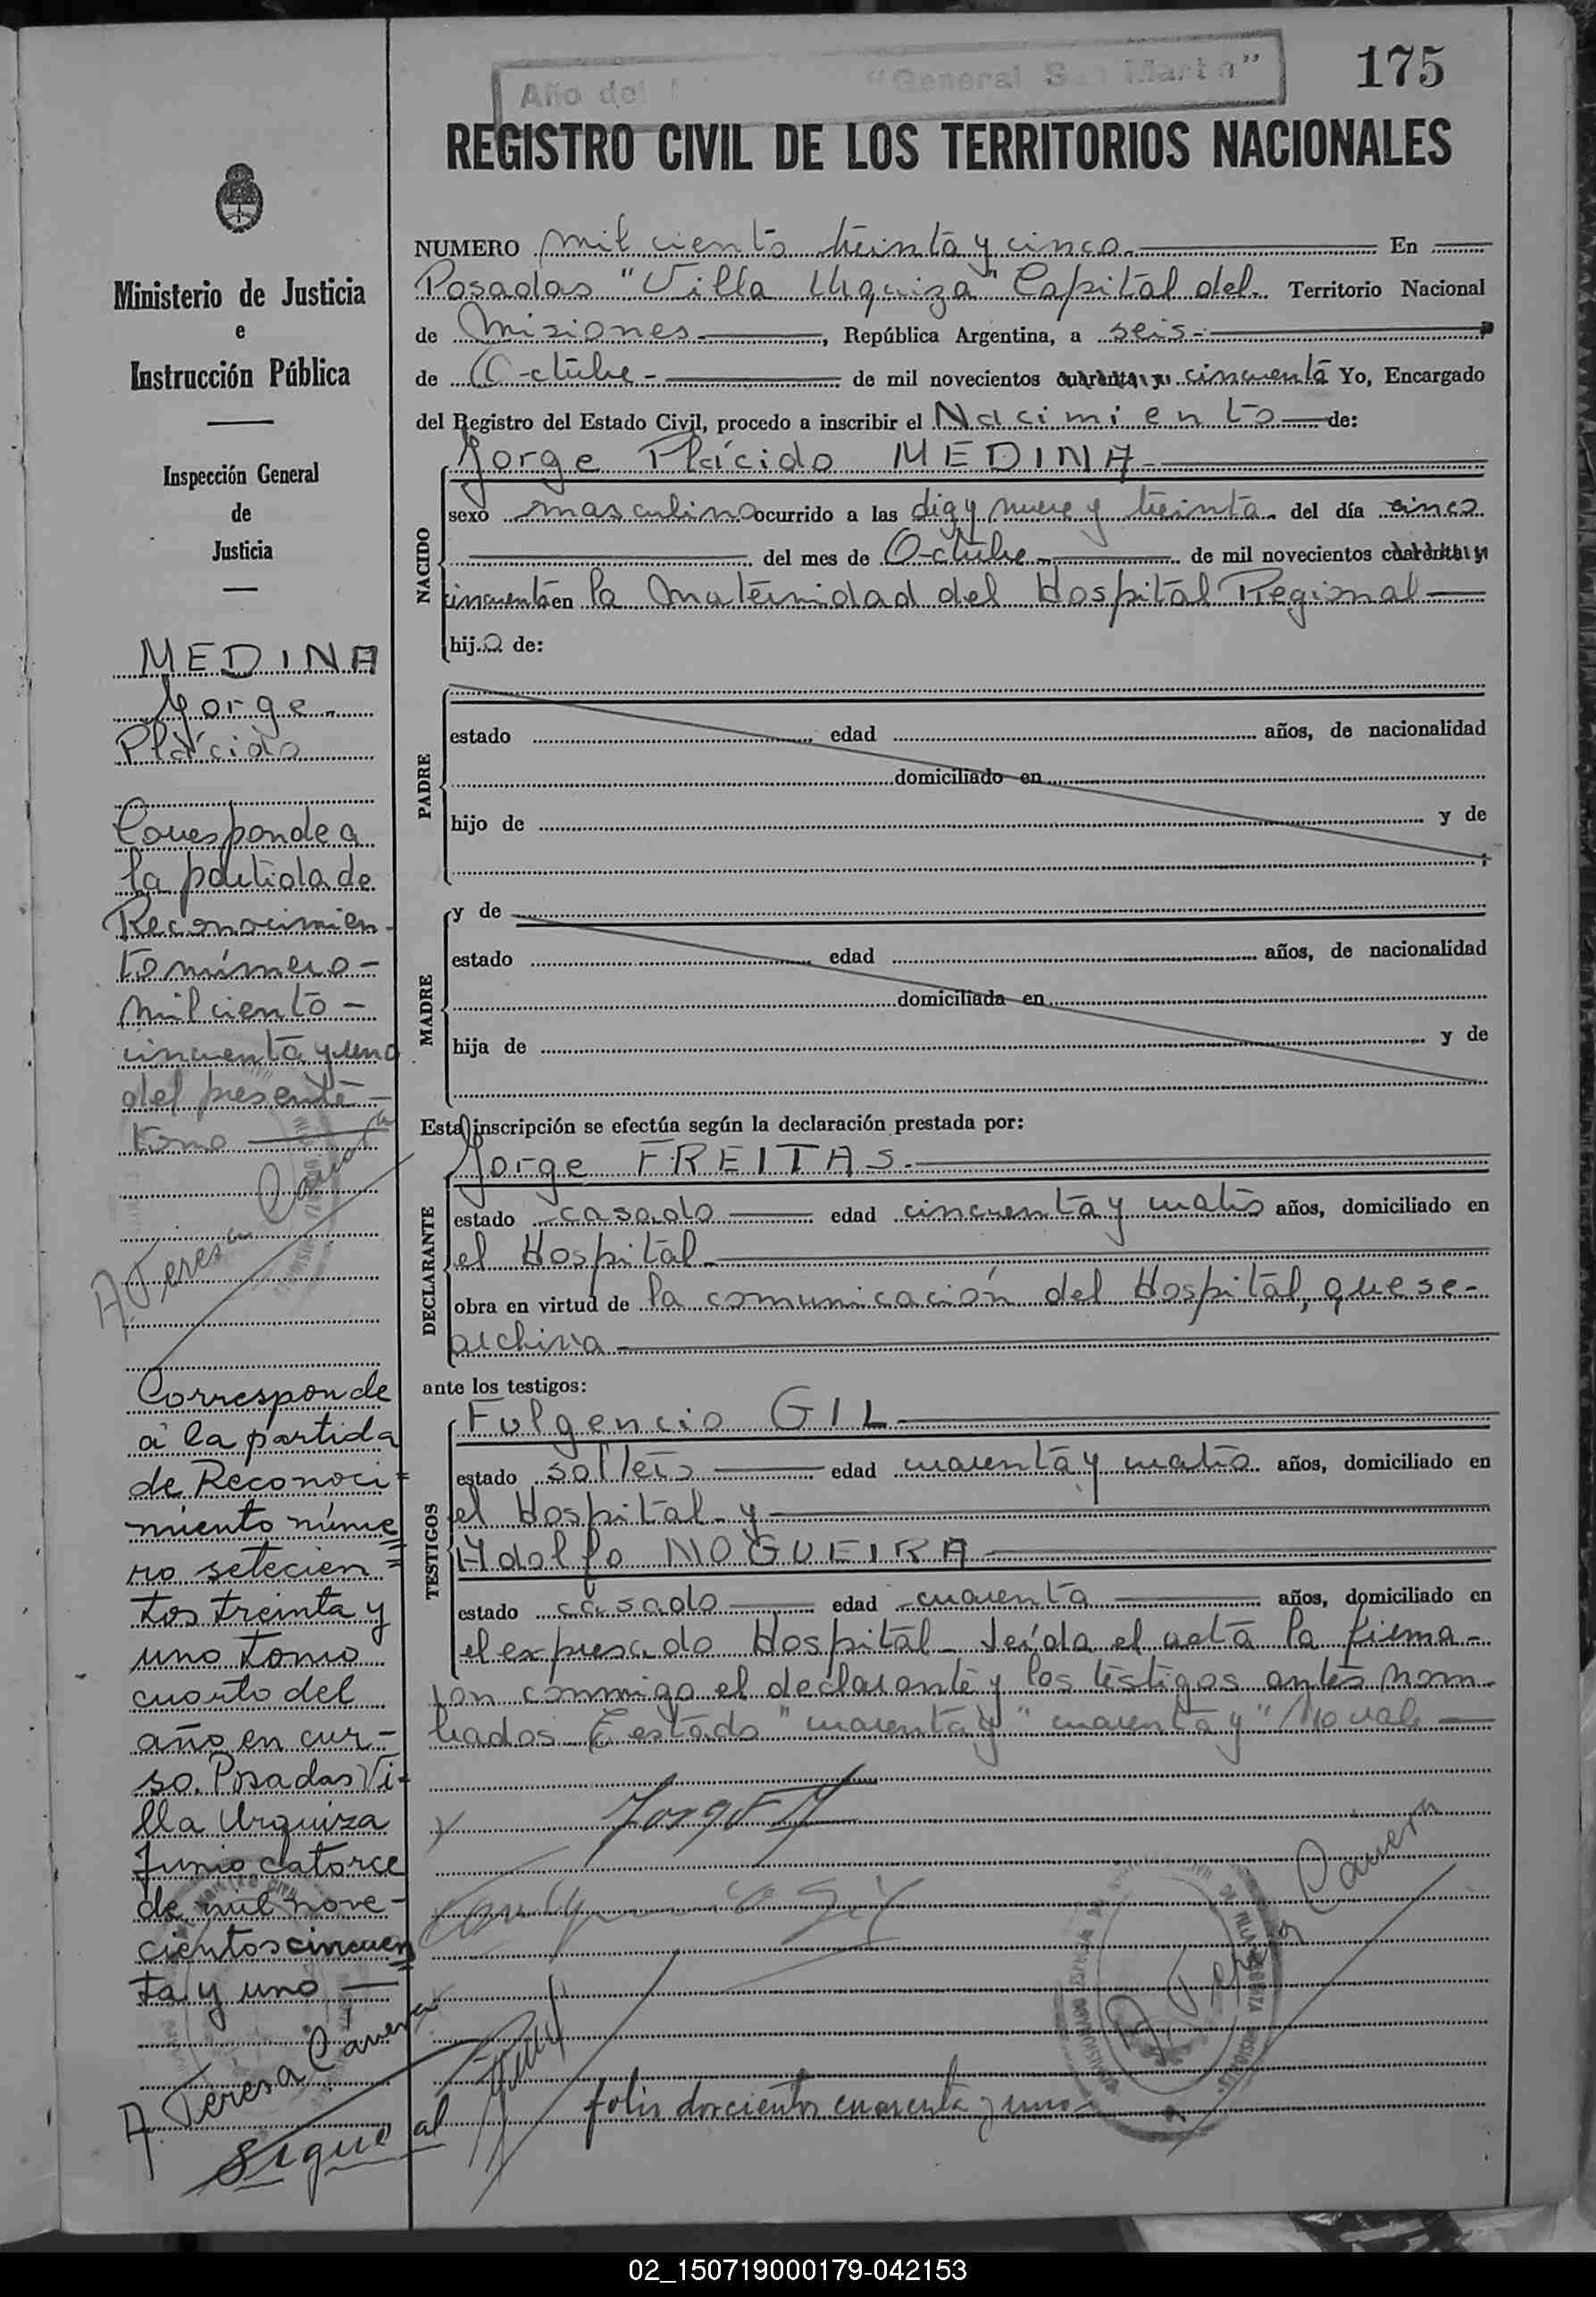 Año del "General San Martín"
175
REGISTRO CIVIL DE LOS TERRITORIOS NACIONALES
Ministerio de Justicia
e
Instrucción Pública
Inspección General
de
Justicia
MEDINA
Jorge
Plácido
Corresponde a
la partida de
Reconocimien-
to número-
mil ciento-
cincuenta y uno
del presente-
tomo
A. Teresa Cavera
Corresponde
a la partida
de Reconoci=
miento núme=
ro setecien=
tos treinta y
uno tomo
cuarto del
año en cur-
so. Posadas Vi-
lla Urquiza
Junio catorce
de mil nove-
cientos cincuen=
ta y uno
A. Teresa Cavera
NUMERO mil ciento treinta y cinco.- En
Posadas "Villa Urquiza" Capital del Territorio Nacional
de Misiones, República Argentina, a seis-
de Octubre- de mil novecientos cuarenta y cincuenta Yo, Encargado
del Registro del Estado Civil, procedo a inscribir el Nacimiento de:
NACIDO
Jorge Plácido MEDINA-
sexo masculino ocurrido a las diez y nueve y treinta del día cinco
del mes de Octubre- de mil novecientos cuarenta y
cincuenta en la Maternidad del Hospital Regional
hijo de:
PADRE
estado edad años, de nacionalidad
domiciliado en
hijo de y de
;
MADRE
y de
estado edad años, de nacionalidad
domiciliada en
hija de y de
Esta inscripción se efectúa según la declaración prestada por:
DECLARANTE
Jorge FREITAS.-
estado casado edad cincuenta y cuatro años, domiciliado en
el Hospital-
obra en virtud de la comunicación del Hospital, que se-
archiva-
ante los testigos:
TESTIGOS
Fulgencio GIL-
estado soltero edad cuarenta y cuatro años, domiciliado en
el Hospital- y
Adolfo NOGUEIRA-
estado casado edad cuarenta años, domiciliado en
el expresado Hospital- Leída el acta la firma-
ron conmigo el declarante y los testigos antes nom-
brados. Testado "cuarenta y" "cuarenta y" No vale
A. Teresa Cavera
Sigue al folio doscientos cuarenta y uno
02_150719000179-042153